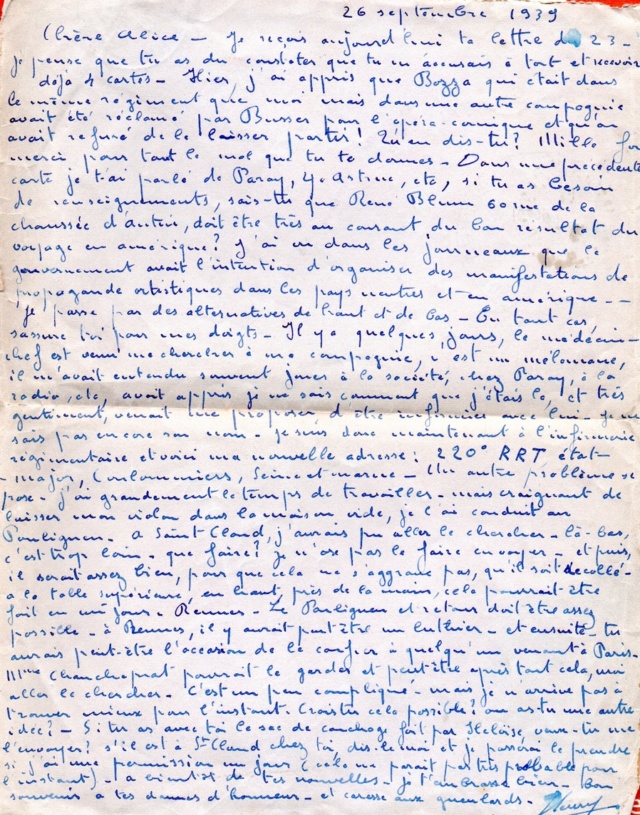 26 septembre 1939
Chère Alice - Je reçois aujourd'hui ta lettre du 23 -
je pense que tu as du constater que tu m'accusais à tort et recevoir
déjà 4 cartes - Hier, j'ai appris que Bozza qui était dans
le même régiment que moi mais dans une autre compagnie
avait été réclamé par Busser pour l'opéra-comique et qu'on
avait refusé de le laisser partir! Qu'en dis-tu? Mille fois
merci pour tout le mal que tu te donnes - Dans une précédente
carte je t'ai parlé de Paray, etc, si tu as besoin
de renseignements, sais-tu que René Blum 60 rue de la
chaussée d'antin, doit être très au courant du bon résultat du
voyage en amérique? J'ai vu dans les journeaux que le
gouvernement avait l'intention d'organiser des manifestations de
propagande artistiques dans les pays neutres et en amérique - -
je passe par des alternatives de haut et de bas - En tout cas,
rassure toi pour mes doigts - Il y a quelques jours, le médecin-
chef est venu me chercher à ma compagnie, c'est un mélomane,
il m'avait entendu souvent jouer à la société, chez Paray, à la
radio, etc, avait appris je ne sais comment que j'étais là, et très
gentiment, venait me proposer d'être infirmier avec lui - Je ne
sais pas encore son nom - Je suis donc maintenant à l'infirmerie
régimentaire et voici ma nouvelle adresse: 220° RRT état
- major, Coulommiers, Seine et marne - Un autre problème se
pose - j'ai grandement le temps de travailler - mais craignant de
laisser mon violon dans la maison vide, je l'ai conduit au
Pouliguen - a Saint Cloud, j'aurais pu aller le chercher - là-bas,
c'est trop loin - que faire? je n'ose pas le faire envoyer - et puis,
il serait assez bien, pour que cela ne s'aggrave pas, qu'il soit recollé -
a la table supérieure, en haut, près de la main, cela pourrait-être
fait en un jour - Rennes - Le Pouliguen et retour doit être assez
possible - à Rennes, il y aurait peut-être un luthier - et ensuite - tu
aurais peut-être l'occasion de le confier à quelqu'un venant à Paris -
Mme pourrait le garder et peut-être après tout cela, moi
aller le chercher - C'est un peu compliqué - mais je n'arrive pas à
trouver mieux pour l'instant. Crois-tu cela possible? ou as-tu une autre
idée? - Si tu as avec toi le sac de couchage fait par Héloïse, veux-tu me
l'envoyer? s'il est à St Cloud chez toi, dis-le moi et je passerai le prendre
si j'ai une permission un jour (cela ne parait pas très probable pour
l'instant) - a bientôt de tes nouvelles - je t'embrasse bien - Bon
souvenir à tes dames d'honneur - et caresse aux gueulards - Henry